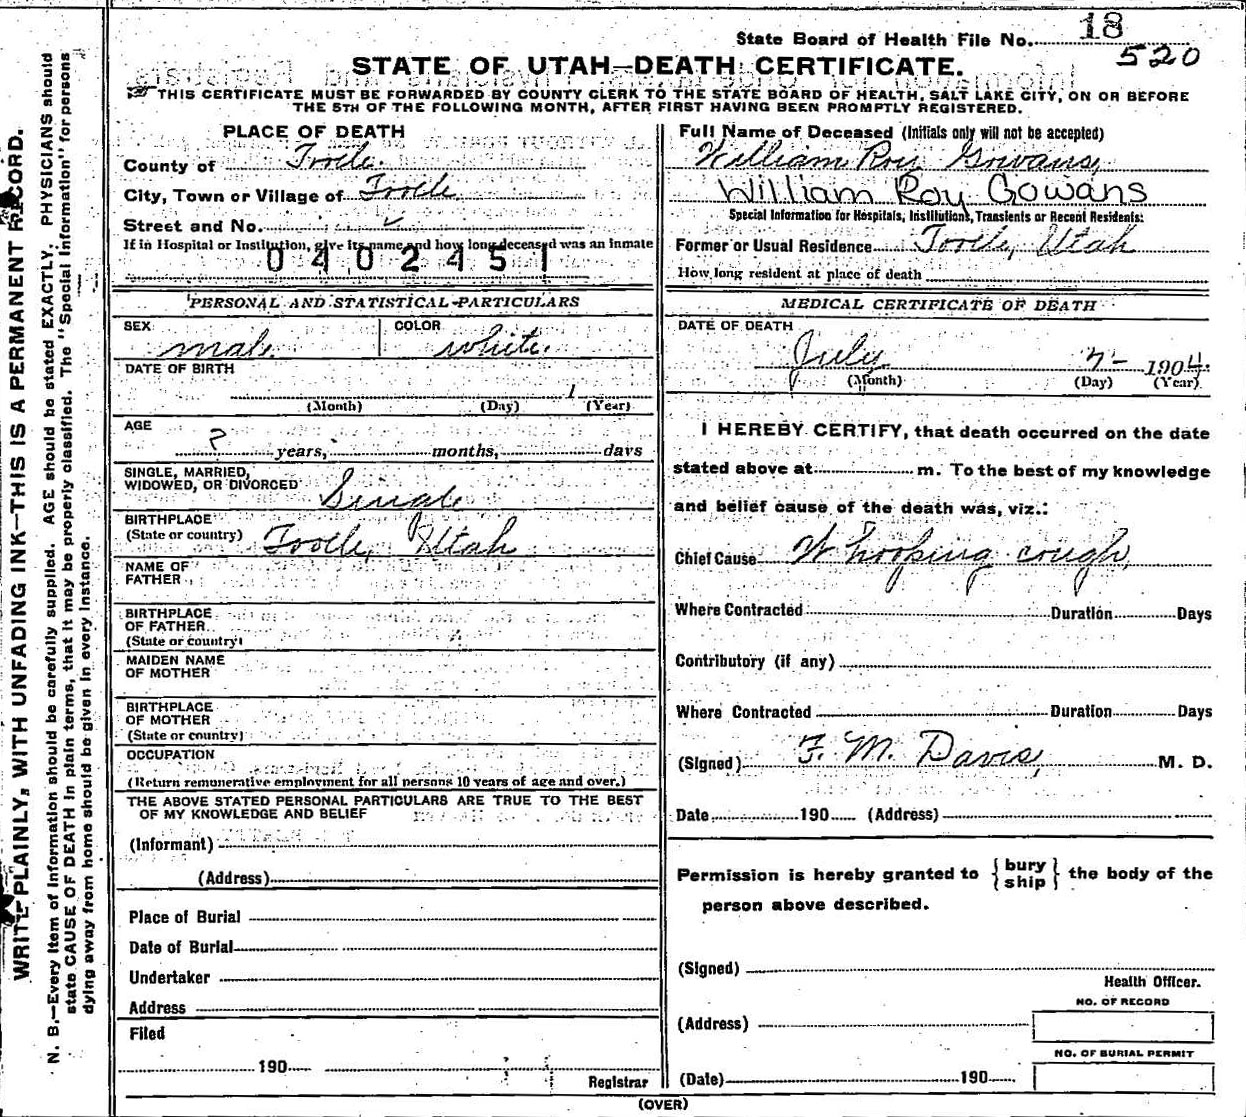 State Board of Health File No. 18
520
STATE OF UTAH—DEATH CERTIFICATE.
THIS CERTIFICATE MUST BE FORWARDED BY COUNTY CLERK TO THE STATE BOARD OF HEALTH, SALT LAKE CITY, ON OR BEFORE
THE 5TH OF THE FOLLOWING MONTH, AFTER FIRST HAVING BEEN PROMPTLY REGISTERED.
WRITE PLAINLY, WITH UNFADING INK—THIS IS A PERMANENT RECORD.
N. B.—Every item of information should be carefully supplied. AGE should be stated EXACTLY. PHYSICIANS should
state CAUSE OF DEATH in plain terms, that it may be properly classified. The "Special Information" for persons
dying away from home should be given in every instance.
PLACE OF DEATH
County of Tooele.
City, Town or Village of Tooele
Street and No.
If in Hospital or Institution, give its name and how long deceased was an inmate
0402451
PERSONAL AND STATISTICAL PARTICULARS
SEX male. COLOR white.
DATE OF BIRTH
(Month) (Day) (Year)
AGE
? years, months, days
SINGLE, MARRIED,
WIDOWED, OR DIVORCED Single
BIRTHPLACE
(State or country) Tooele, Utah
NAME OF
FATHER
BIRTHPLACE
OF FATHER
(State or country)
MAIDEN NAME
OF MOTHER
BIRTHPLACE
OF MOTHER
(State or country)
OCCUPATION
(Return remunerative employment for all persons 10 years of age and over.)
THE ABOVE STATED PERSONAL PARTICULARS ARE TRUE TO THE BEST
OF MY KNOWLEDGE AND BELIEF
(Informant)
(Address)
Place of Burial
Date of Burial
Undertaker
Address
Filed
190
Registrar
Full Name of Deceased (Initials only will not be accepted)
William Roy Gowans,
William Roy Gowans
Special Information for Hospitals, Institutions, Transients or Recent Residents:
Former or Usual Residence Tooele, Utah
How long resident at place of death
MEDICAL CERTIFICATE OF DEATH
DATE OF DEATH
July 7- 1904.
(Month) (Day) (Year)
I HEREBY CERTIFY, that death occurred on the date
stated above at m. To the best of my knowledge
and belief cause of the death was, viz.:
Chief Cause Whooping cough,
Where Contracted Duration Days
Contributory (if any)
Where Contracted Duration Days
(Signed) F. M. Davis, M. D.
Date 190 (Address)
Permission is hereby granted to { bury
ship } the body of the
person above described.
(Signed)
Health Officer.
NO. OF RECORD
(Address)
NO. OF BURIAL PERMIT
(Date) 190
(OVER)